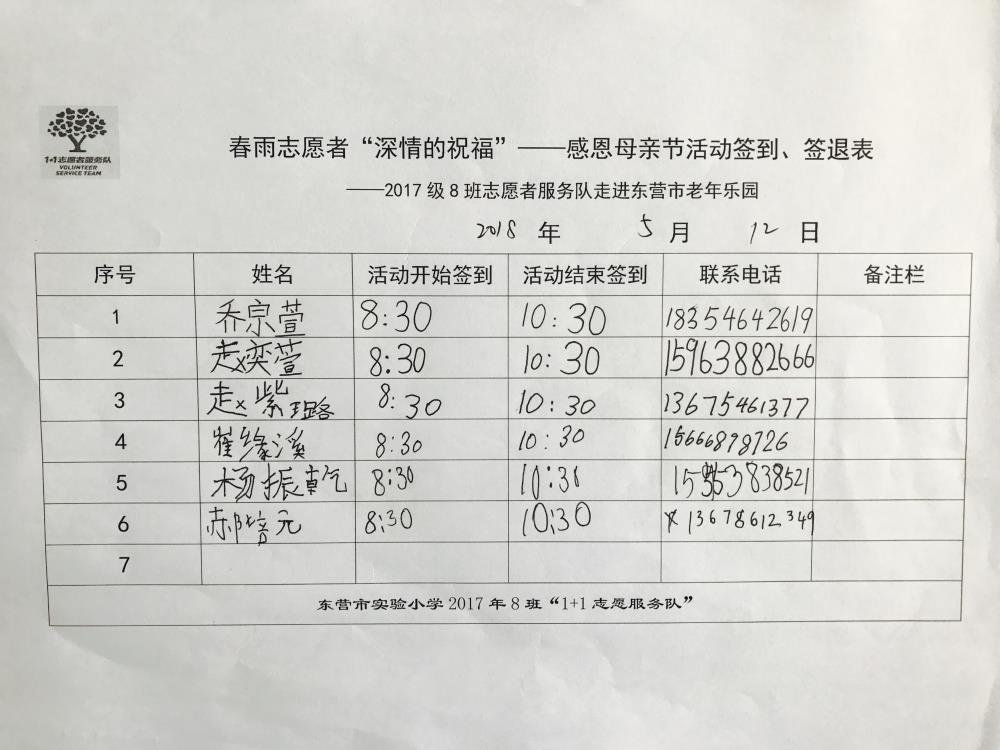 1+1志愿者服务队
VOLUNTEER
SERVICE TEAM
春雨志愿者“深情的祝福”——感恩母亲节活动签到、签退表
——2017 级 8 班志愿者服务队走进东营市老年乐园
2018 年 5 月 12 日
序号 姓名 活动开始签到 活动结束签到 联系电话 备注栏
1 乔宗萱 8:30 10:30 18354642619
2 赵奕萱 8:30 10:30 15963882666
3 赵紫璐 8:30 10:30 13675461377
4 崔缘溪 8:30 10:30 15666898726
5 杨振乾 8:30 10:30
6 郝培元 8:30 10:30 13678612349
7
东营市实验小学 2017 年 8 班“1+1 志愿服务队”